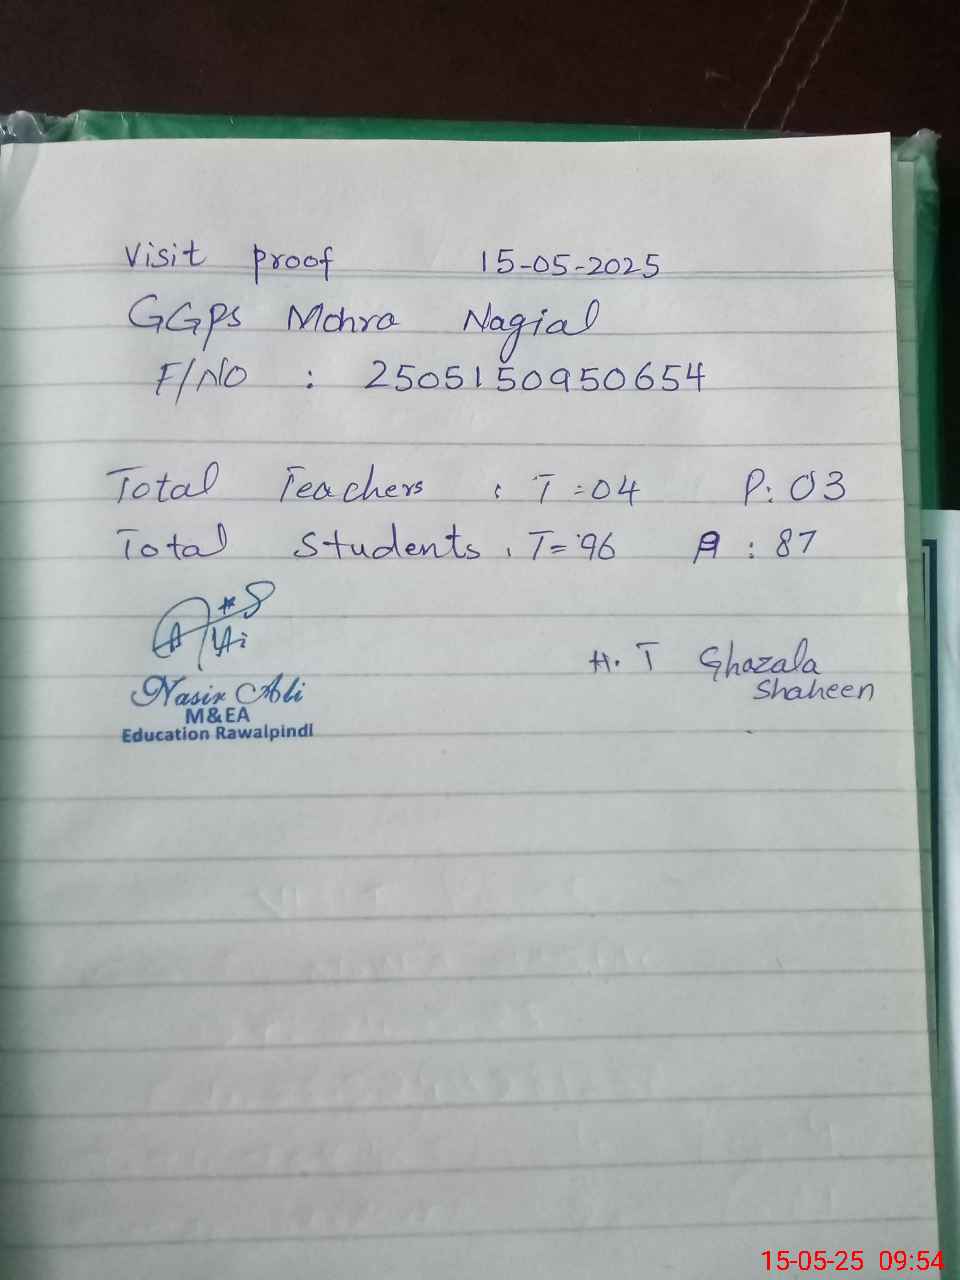 Visit proof 15-05-2025
GGPS Mohra Nagial
F/NO : 2505150950654
Total Teachers : T=04 P: 03
Total Students : T=96 P : 87
H. T Ghazala
Shaheen
Nasir Ali
M&EA
Education Rawalpindi
15-05-25 09:54